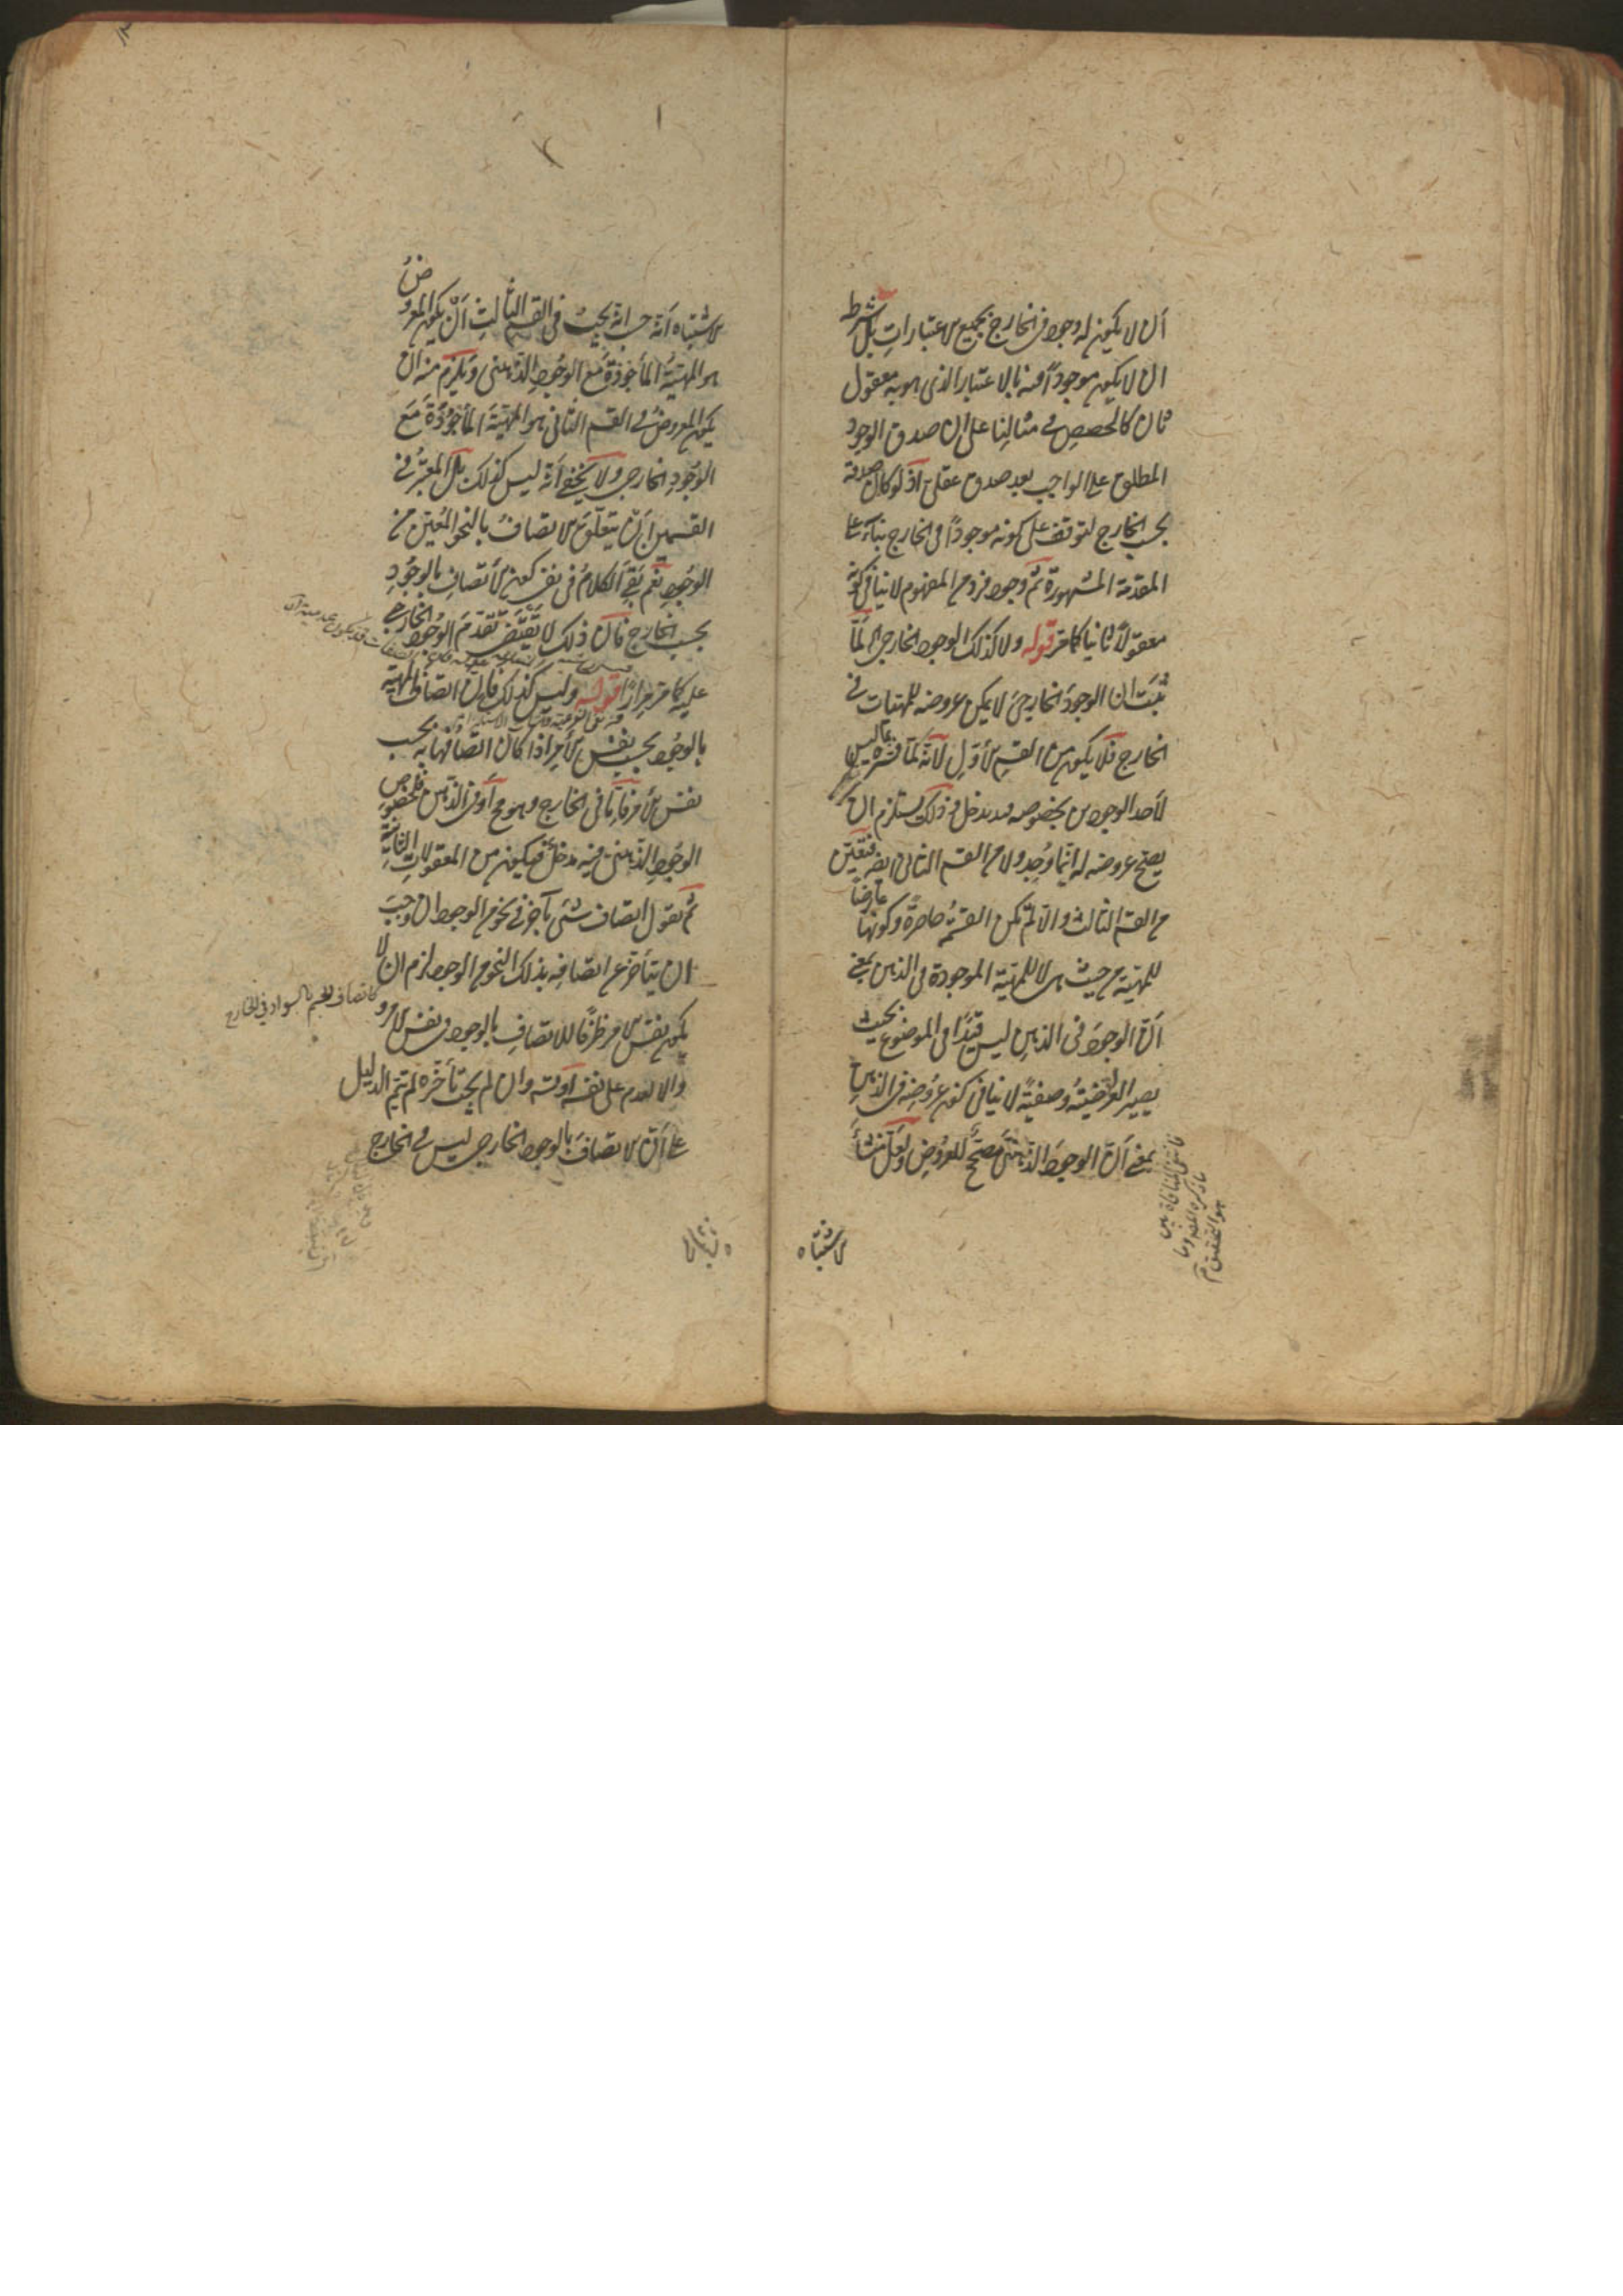 ان لا يكون له وجود في الخارج بجميع الاعتبارات بل شرط
ان لا يكون موجودا فيه بالاعتبار الذى هو به معقول
ثان كالحصص في مثالنا على ان صدق الوجود
المطلق على الواجب يعد صدق عقلى اذ لو كان صدقه
بحسب الخارج لتوقف على كونه موجوداً في الخارج بناءً على
المقدمة المشهورة ثم وجود فرد من المفهوم لا ينافى كونه
معقولاً ثانيا كما مر قوله ولا كذلك الوجود الخارجى لما
ثبت ان الوجود الخارجىَ لا يمكن عروضه للمهيات في
الخارج فلا يكون من القسم الأول لأنه كما فسره بما ليس
لأحد الوجودين بخصوصه مدخل في ذلك يستلزم ان
يصح عروضه له اينما وُجد ولا من القسم الثانى ايضا فتعين
من القسم الثالث والا لم تكن القسمة حاصرةً وكونها عارضاً
للمهية من حيث هى لا للمهية الموجودة في الذهن بمعنى
أنّ الوجودَ في الذهنِ ليس قيدًا في الموضوع بحيث
يصير القضيةُ وصفيةً لا ينافى كون عروضه في الذهن
بمعنى أنّ الوجودَ الذهنىَّ مصحح للعروض ولعل منشأَ
فانتفى المنافاة بين
ما ذكره المصـ وما
هو التحقيق
الاشتباه
الاشتباه أنه حسب انه يجبُ في القسم الثالثِ أنّ يكون المعروضُ
هو المهيةُ المأخوذةُ مع الوجودِ الذهنى ويلزم منه ان
يكون المعروضُ في القسم الثانى هو المهيةَ المأخوذةَ معَ
الوجودِ الخارجى ولا يخفى أنه ليس كذلك بل المعتبرُ في
القسمين أنْ يتعلّقَ الاتصافُ بالنحو المعيّنِ من
الوجودِ نعم بقى الكلامُ في نفى كون الأتصافِ بالوجودِ
بحسب الخارج فان ذلك لا يقتضى تقدمَ الوجود الخارجى
عليه كما مر مرارًا قوله وليس كذلك فان اتصاف المهية
بالوجود بحسب نفس الأمر اذا كان اتصافها به بحسب
نفس الأمر فإما في الخارج وهو مح أو في الذهن فلخصوص
الوجودِ الذهنى فيه مدخلٌ فيكون من المعقولاتِ الثانيةِ
ثم نقول اتصاف شئ بآخر في نحو من الوجود ان وجب
ان يتأخر عن اتصافِه بذلك النحو من الوجود لزم ان لا
كاتصاف الجسم بالسواد في الخارج
يكون نفس الامر ظرفًا للاتصافِ بالوجود في نفس الامر و
والا لتقدم على نفسه وان لم يجب تأخره لم يتم الدليل
على أنّ الاتصافَ بالوجود الخارجى ليس في الخارج